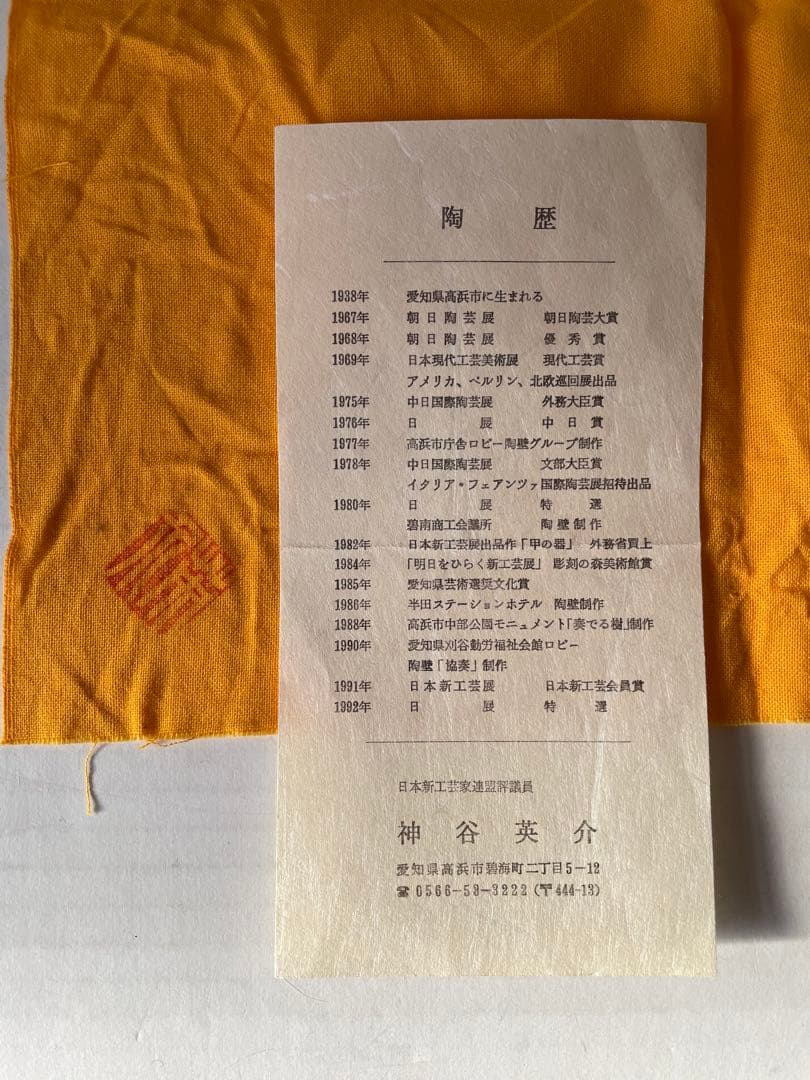 陶歴
1938年 愛知県高浜市に生まれる
1967年 朝日陶芸展 朝日陶芸大賞
1968年 朝日陶芸展 優秀賞
1969年 日本現代工芸美術展 現代工芸賞
アメリカ、ベルリン、北欧巡回展出品
1975年 中日国際陶芸展 外務大臣賞
1976年 日展 中日賞
1977年 高浜市庁舎ロビー陶壁グループ制作
1978年 中日国際陶芸展 文部大臣賞
イタリア・フェアンツァ国際陶芸展招待出品
1980年 日展 特選
碧南商工会議所 陶壁制作
1982年 日本新工芸展出品作「甲の器」 外務省買上
1984年 「明日をひらく新工芸展」 彫刻の森美術館賞
1985年 愛知県芸術選奨文化賞
1986年 半田ステーションホテル 陶壁制作
1988年 高浜市中部公園モニュメント「奏でる樹」制作
1990年 愛知県刈谷勤労福祉会館ロビー
陶壁「協奏」制作
1991年 日本新工芸展 日本新工芸会員賞
1992年 日展 特選
日本新工芸家連盟評議員
神谷英介
愛知県高浜市碧海町二丁目5-12
☎0566-53-3222(〒444-13)